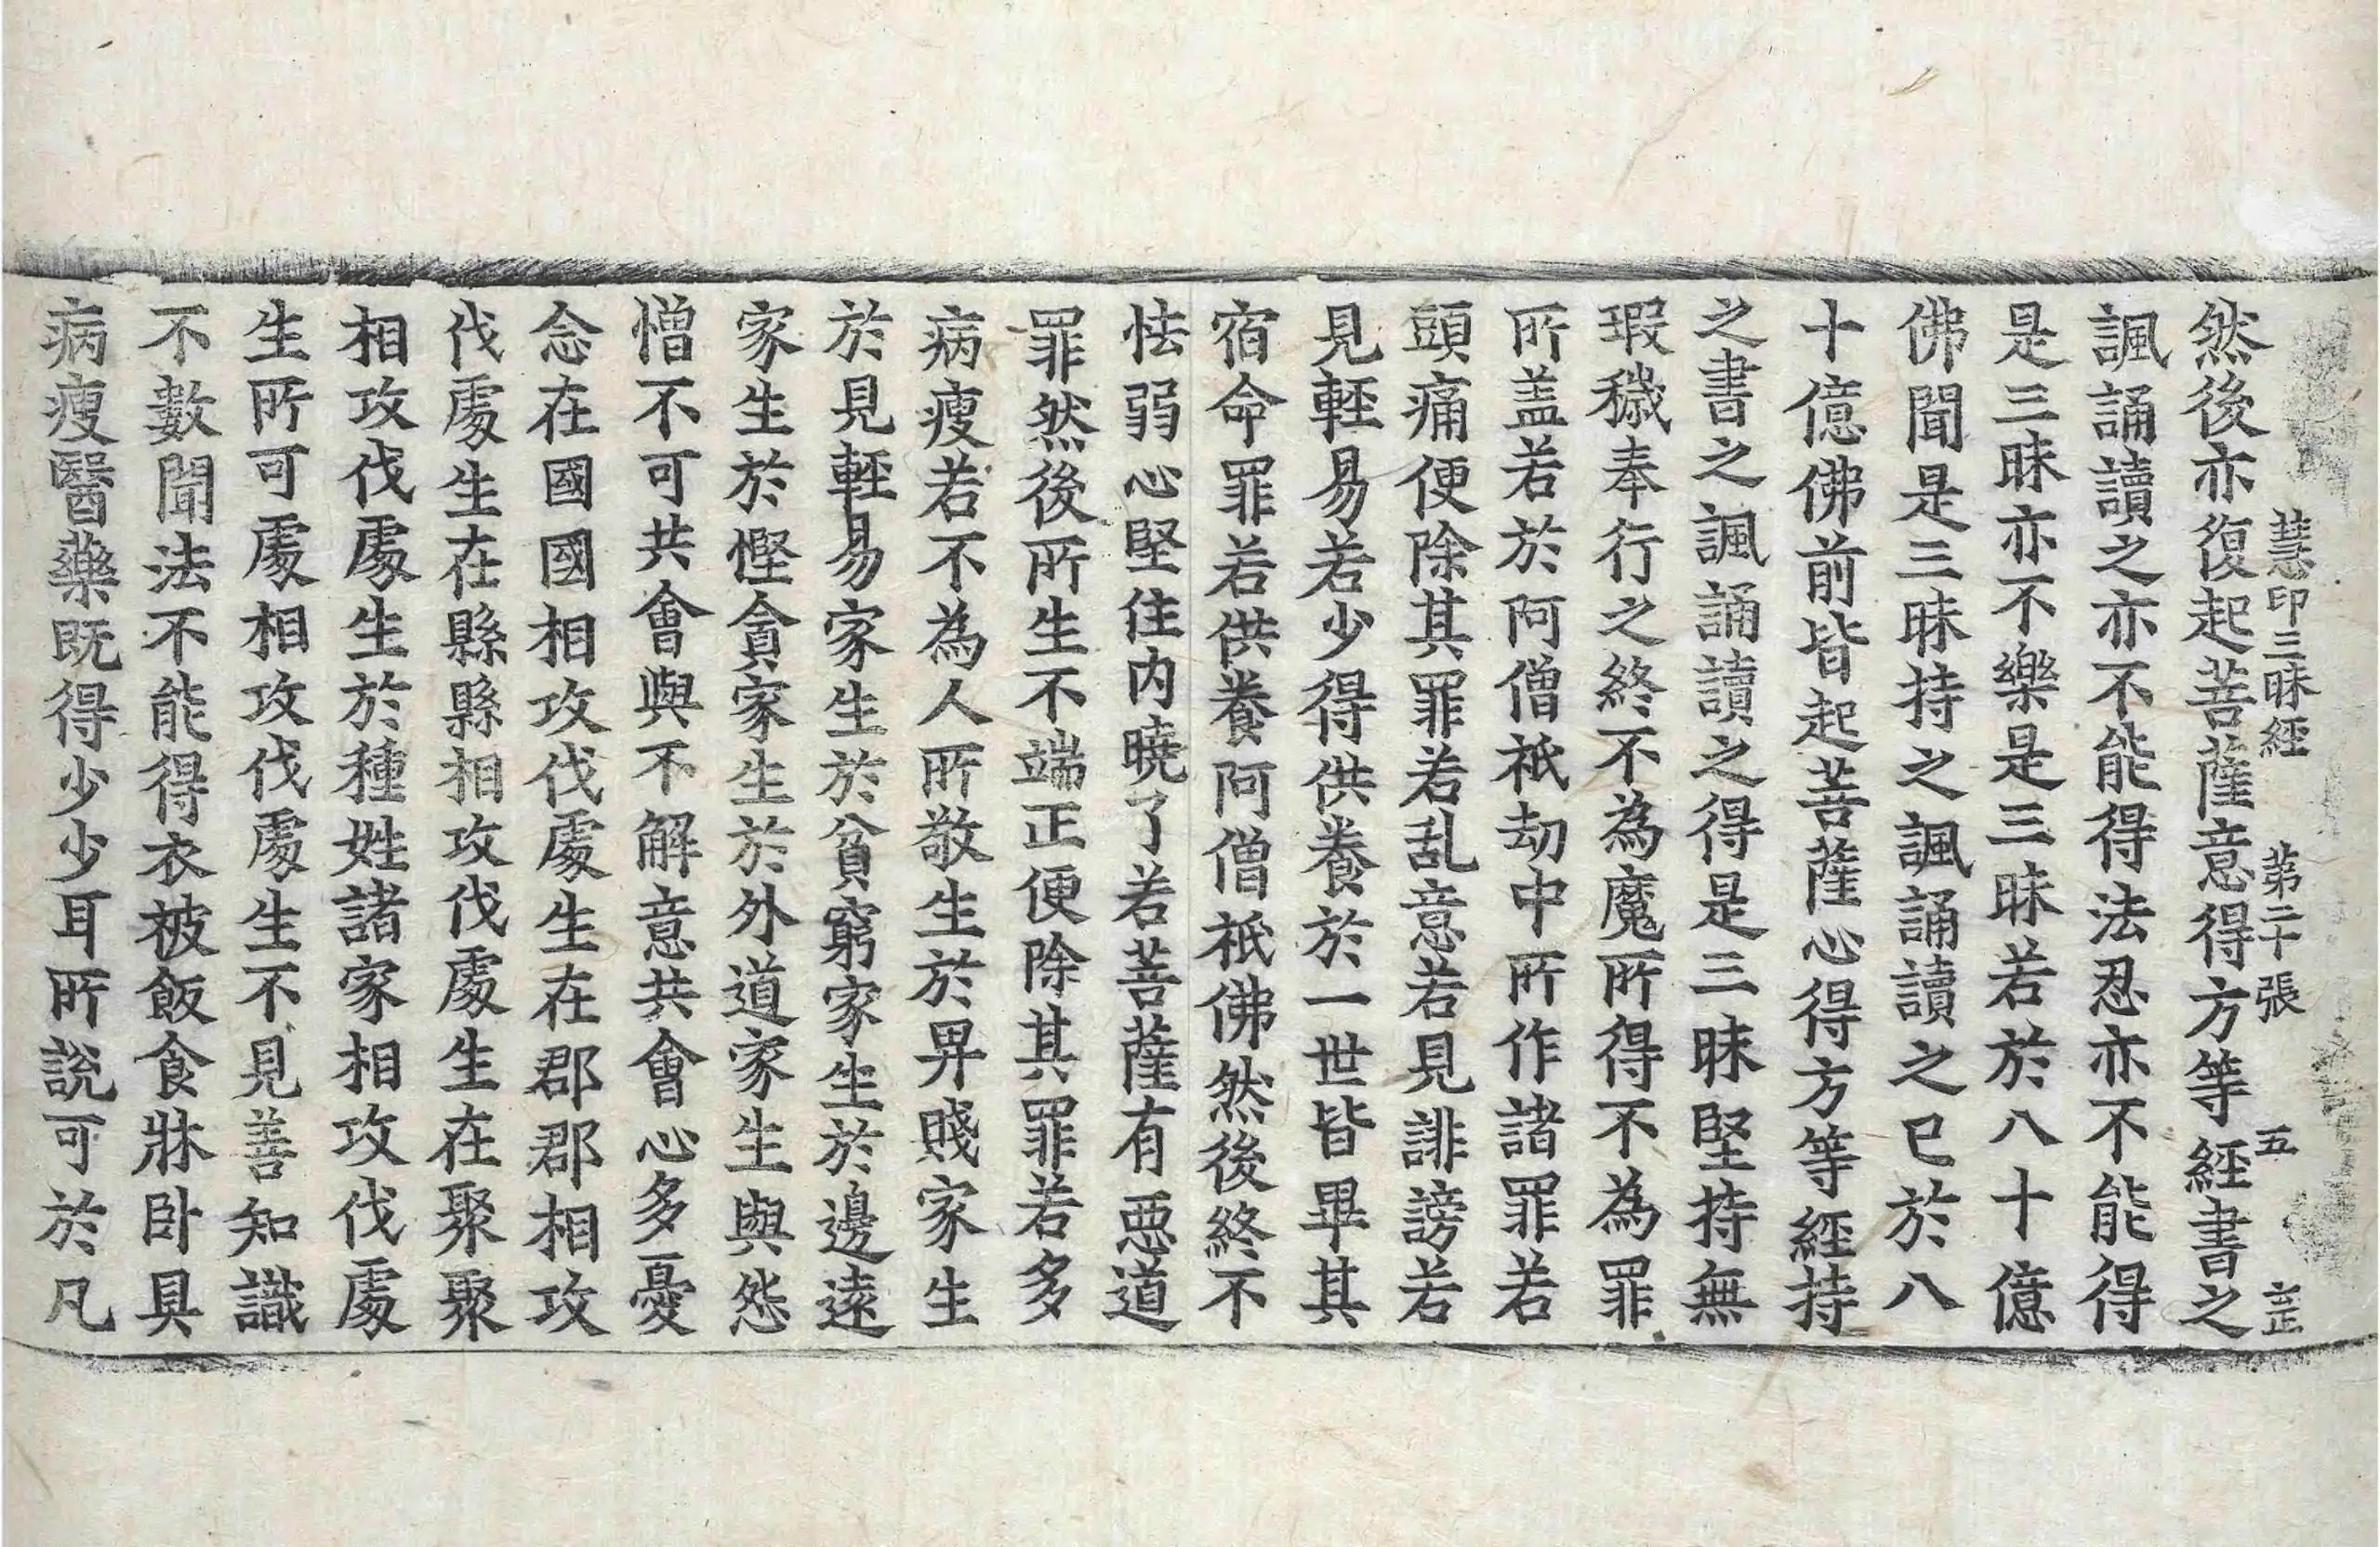 慧印三昧經 第二十張 五 㱏
然後亦復起菩薩意得方等經書之
諷誦讀之亦不能得法忍亦不能得
是三昧亦不樂是三昧若於八十億
佛聞是三昧持之諷誦讀之已於八
十億佛前皆起菩薩心得方等經持
之書之諷誦讀之得是三昧堅持無
瑕穢奉行之終不為魔所得不為罪
所盖若於阿僧祇劫中所作諸罪若
頭痛便除其罪若乱意若見誹謗若
見輕易若少得供養於一世皆畢其
宿命罪若供養阿僧祇佛然後終不
怯弱心堅住内曉了若菩薩有惡道
罪然後所生不端正便除其罪若多
病瘦若不為人所敬生於卑賤家生
於見輕易家生於貧窮家生於邊遠
家生於慳貪家生於外道家生與怨
憎不可共會與不解意共會心多憂
念在國國相攻伐處生在郡郡相攻
伐處生在縣縣相攻伐處生在聚聚
相攻伐處生於種姓諸家相攻伐處
生所可處相攻伐處生不見善知識
不數聞法不能得衣被飯食牀卧具
病瘦醫藥既得少少耳所說可於凡